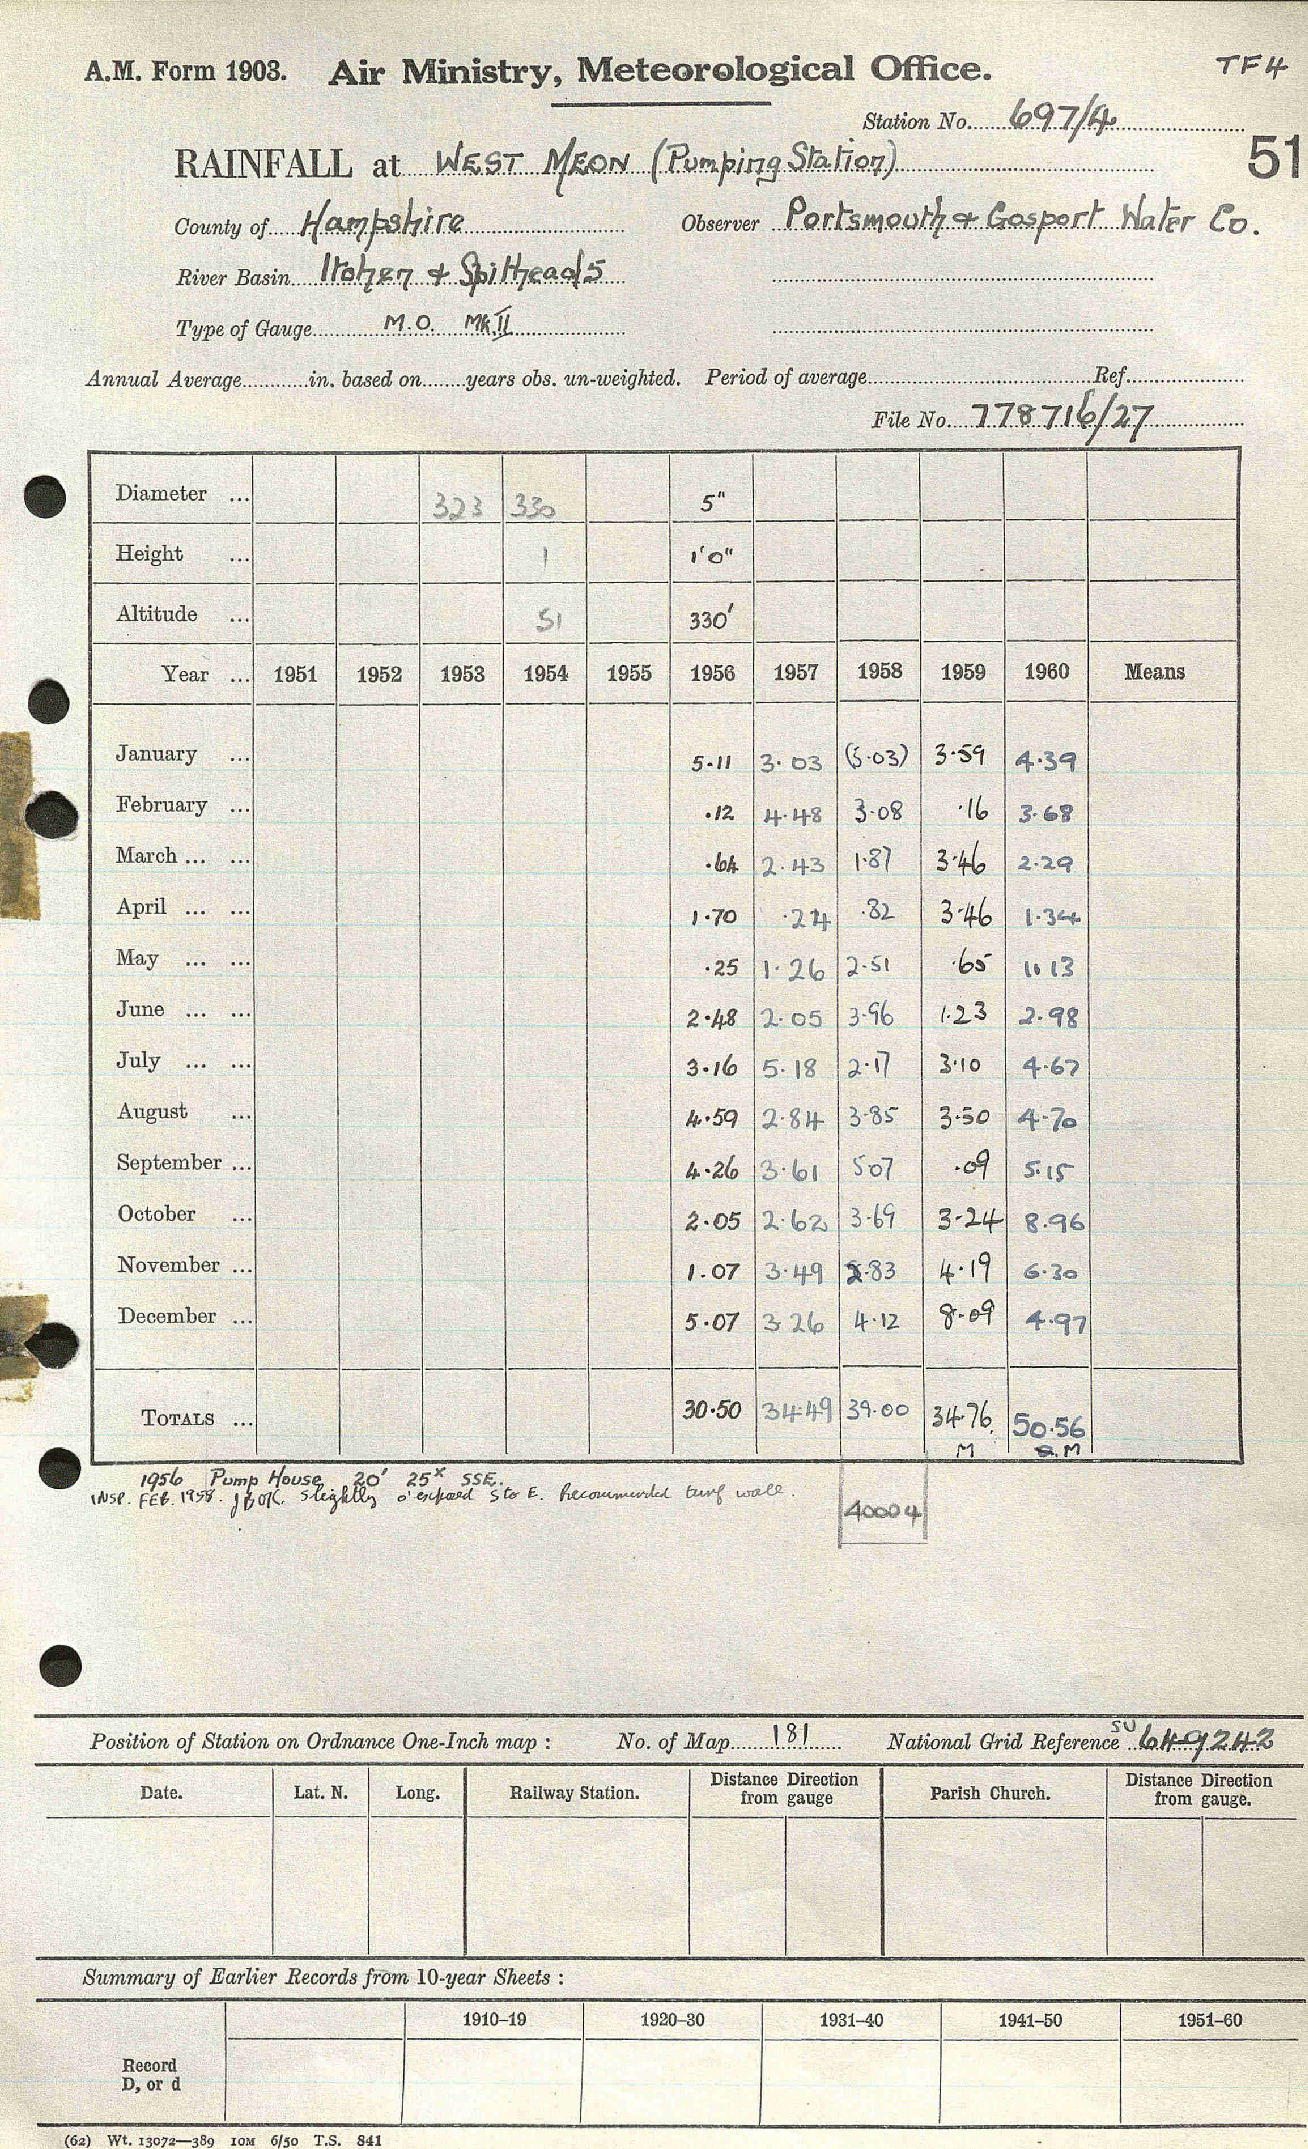 A.M. Form 1903. Air Ministry, Meteorological Office. TF4
Station No. 697/4
RAINFALL at WEST MEON (Pumping Station) 51
County of Hampshire Observer Portsmouth & Gosport Water Co.
River Basin Itchen & Spithead 5
Type of Gauge M.O. Mk II
Annual Average in. based on years obs. un-weighted. Period of average Ref.
File No. 778716/27
Diameter ... 323 330 5"
Height ... 1 1'0"
Altitude ... 51 330'
Year ... 1951 1952 1953 1954 1955 1956 1957 1958 1959 1960 Means
January ... 5.11 3.03 (5.03) 3.59 4.39
February ... .12 4.48 3.08 .16 3.68
March ... ... .64 2.43 1.87 3.46 2.29
April ... ... 1.70 .24 .82 3.46 1.34
May ... ... .25 1.26 2.51 .65 1.13
June ... ... 2.48 2.05 3.96 1.23 2.98
July ... ... 3.16 5.18 2.17 3.10 4.67
August ... 4.59 2.84 3.85 3.50 4.70
September ... 4.26 3.61 5.07 .09 5.15
October ... 2.05 2.62 3.69 3.24 8.96
November ... 1.07 3.49 2.83 4.19 6.30
December ... 5.07 3.26 4.12 8.09 4.97
TOTALS ... 30.50 34.49 39.00 34.76 50.56
M M
1956 Pump House 20' 25x SSE.
INSP. FEB. 1958. slightly o'exposed S to E. Recommended turf wall.
40004
Position of Station on Ordnance One-Inch map : No. of Map 181 National Grid Reference SU 649242
Date. Lat. N. Long. Railway Station. Distance Direction from gauge Parish Church. Distance Direction from gauge.
Summary of Earlier Records from 10-year Sheets :
1910–19 1920–30 1931–40 1941–50 1951–60
Record
D, or d
(62) Wt. 13072—389 10M 6/50 T.S. 841